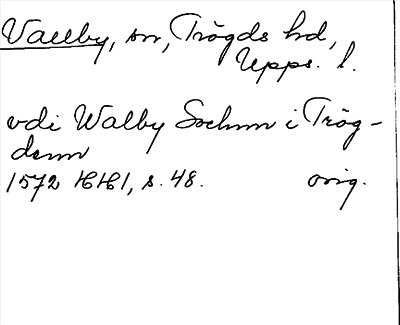 Vallby, sn, Trögds hd,
Upps. l.
vdi Walby Sochnn i Trög-
denn
1572 HH1, s. 48. orig.